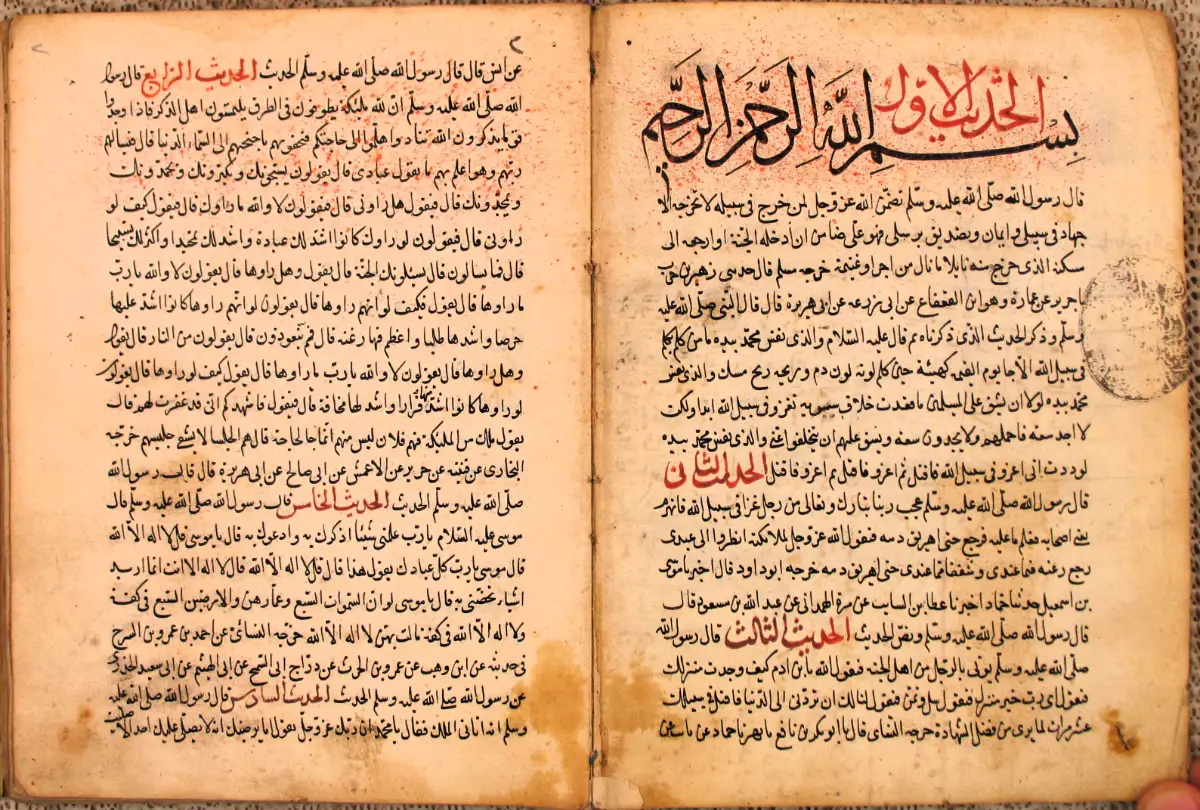 الحديث الاول
بسم الله الرحمن الرحيم
قال رسول الله صلى الله عليه وسلم تضمن الله عز وجل لمن خرج في سبيله لا يخرجه الا
جهاد في سبيلي وايمان وتصديق برسلي فهو على ضامن ان ادخله الجنة او ارجعه الى
سكنه الذي خرج منه نايلا ما نال من اجر او غنيمة خرجه مسلم قال حدثني زهير بن حرب
جرير عن عمارة وهو ابن القعقاع عن ابي زرعه عن ابي هريرة قال قال النبي صلى الله عليه
وسلم وذكر الحديث الذي ذكرناه ثم قال عليه السلام والذي نفس محمد بيده ما من كلم يكلم
في سبيل الله الا جا يوم القيمة كهيئة حين كلم لونه لون دم وريحه ريح مسك والذي نفس
محمد بيده لولا ان يشق على المسلمين ما قعدت خلاف سريه تغزو في سبيل الله ابدا ولكن
لا اجد سعه فاحملهم ولا يجدون سعه ويشق عليهم ان يتخلفوا عني والذي نفس محمد بيده
لوددت اني اغزو في سبيل الله فاقتل ثم اغزو فاقتل ثم اغزو فاقتل الحديث الثاني
قال رسول الله صلى الله عليه وسلم عجب ربنا تبارك وتعالى من رجل غزا في سبيل الله فانهزم
يعني اصحابه فعلم ما عليه فرجع حتى اهريق دمه فيقول الله عز وجل لملائكته انظروا الى عبدي
رجع رغبه فيما عندي وشفقا مما عندي حتى اهريق دمه خرجه ابو داود قال اخبرنا موسى
بن اسمعيل حدثنا حماد اخبرنا عطا بن السايب عن مرة الهمداني عن عبد الله بن مسعود قال
قال رسول الله صلى الله عليه وسلم الحديث الحديث الثالث قال رسول الله
صلى الله عليه وسلم يوتى بالرجل من اهل الجنة فيقول الله يا ابن ادم كيف وجدت منزلك
فيقول اي رب خير منزل فيقول سل وتمن فيقول اسالك ان تردني الى الدنيا فاقتل في سبيلك
عشر مرات لما يرى من فضل الشهادة خرجه النساي قال ابو بكر بن نافع بهز حماد عن ثابت
٢
عن انس قال قال رسول الله صلى الله عليه وسلم الحديث الحديث الرابع قال رسول
الله صلى الله عليه وسلم ان لله مليكة يطوفون في الطرق يلتمسون اهل الذكر فاذا وجدوا
قوما يذكرون الله تنادوا هلموا الى حاجتكم فيحفونهم باجنحتهم الى السماء الدنيا قال فيسالهم
ربهم وهو اعلم بهم ما يقول عبادي قال يقولون يسبحونك ويكبرونك ويحمدونك
ويمجدونك قال فيقول هل راوني قال فيقولون لا والله ما راوك قال فيقول كيف لو
راوني قال فيقولون لو راوك كانوا اشد لك عبادة واشد لك تمجيدا واكثر لك تسبيحا
قال فما يسالون قال يسيلونك الجنة قال يقول وهل راوها قال يقولون لا والله يا رب
ما راوها قال يقول فكيف لو انهم راوها قال يقولون لو انهم راوها كانوا اشد عليها
حرصا واشد لها طلبا واعظم فيها رغبه قال فمم يتعوذون قال يقولون من النار قال يقول
وهل راوها قال يقولون لا والله يا رب ما راوها قال يقول كيف لو راوها قال يقولون
لو راوها كانوا اشد منها فرارا واشد لها مخافة قال فيقول فاشهدكم اني قد غفرت لهم قال
يقول ملك من المليكة فيهم فلان ليس منهم انما جا لحاجة قال هم الجلسا لا يشقى جليسهم خرجه
البخاري عن قتيبه عن جرير عن الاعمش عن ابي صالح عن ابي هريرة قال قال رسول الله
صلى الله عليه وسلم الحديث الحديث الخامس قال رسول الله صلى الله عليه وسلم قال
موسى عليه السلام يا رب علمني شيئا اذكرك به وادعوك به قال يا موسى قل لا اله الا الله
قال موسى يا رب كل عبادك يقول هذا قال قل لا اله الا الله قال لا اله الا انت انما اريد
شيا تخصني به قال يا موسى لو ان السموات السبع وعمارهن والارضين السبع في كفة
ولا اله الا الله في كفة مالت بهن لا اله الا الله خرجه النسائي عن احمد بن عمرو بن السرح
في حديثه عن ابن وهب عن عمرو بن الحرث عن دراج ابي السمح عن ابي الهيثم عن ابي سعيد الخدري
عن رسول الله صلى الله عليه وسلم الحديث الحديث السادس قال رسول الله صلى الله عليه
وسلم انه اتاني الملك فقال يا محمد ان ربك عز وجل يقول اما يرضيك انه لا يصلي عليك احد الا